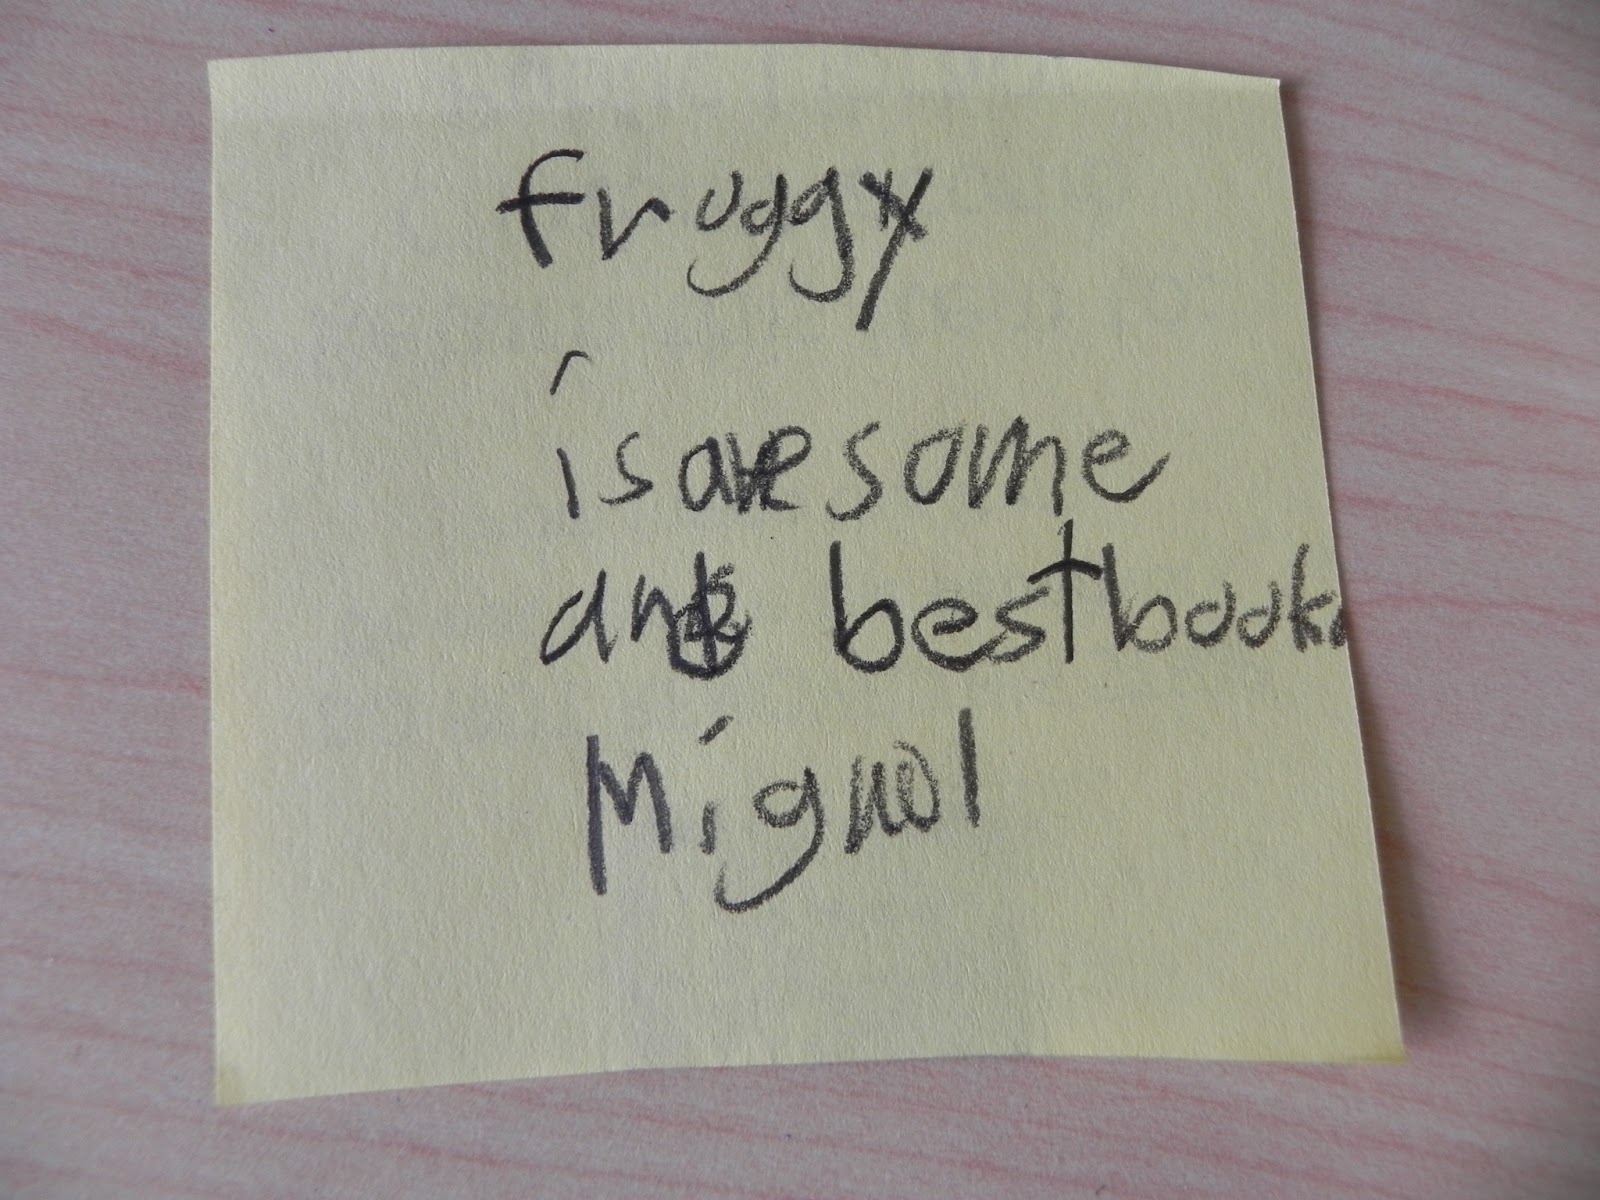 fruggy
is awesome
and best book
Miguel